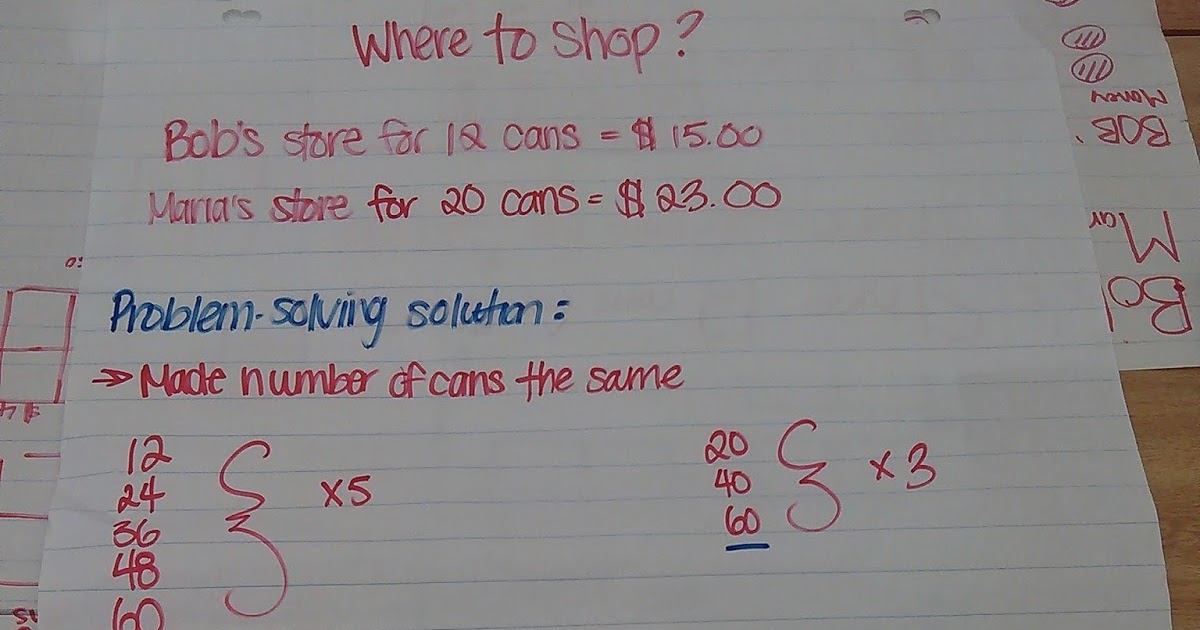 Where to shop?
Bob's store for 12 cans = $ 15.00
Maria's store for 20 cans = $ 23.00
Problem-solving solution:
→ Made number of cans the same
12
24
36
48
60
x5
20
40
60
x 3
Money
BOB
Mar
Bo